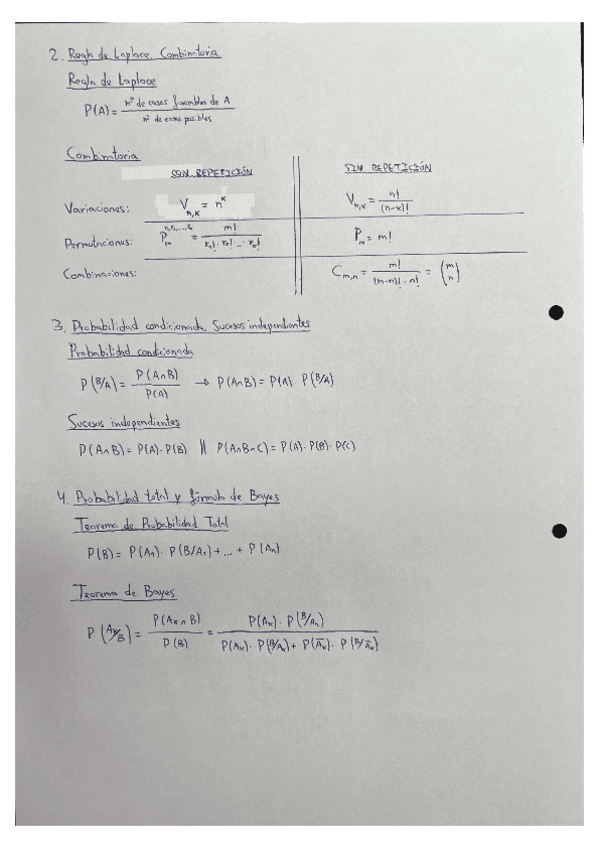 2. Regla de Laplace. Combinatoria
Regla de Laplace
P(A) = nº de casos favorables de A / nº de casos posibles
Combinatoria
CON REPETICIÓN SIN REPETICIÓN
Variaciones: V n,k = n^k V n,k = n! / (n-k)!
Permutaciones: P m = m! / r₁! · r₂! ... · rₖ! P m = m!
Combinaciones: C m,n = m! / (m-n)! · n! = (m n)
3. Probabilidad condicionada. Sucesos independientes
Probabilidad condicionada
P(B/A) = P(A∩B) / P(A) → P(A∩B) = P(A) · P(B/A)
Sucesos independientes
P(A∩B) = P(A) · P(B) || P(A∩B∩C) = P(A) · P(B) · P(C)
4. Probabilidad total y fórmula de Bayes
Teorema de Probabilidad Total
P(B) = P(A₁) · P(B/A₁) + ... + P(Aₙ)
Teorema de Bayes
P(Aₖ/B) = P(Aₖ∩B) / P(B) = P(Aₖ) · P(B/Aₖ) / P(Aₖ) · P(B/Aₖ) + P(A̅ₖ) · P(B/A̅ₖ)